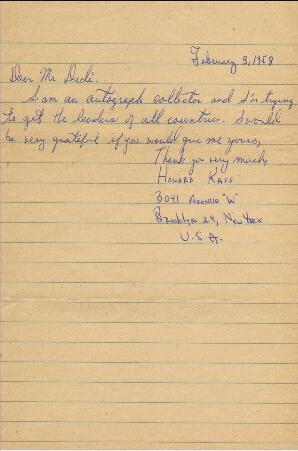 February 3, 1958
Dear Mr. Dedi.
I am an autograph collector and I'm trying
to get the leaders of all countries. I would
be very grateful if you would give me yours,
Thank you very much
Howard Kass
3041 Avenue "W"
Brooklyn 29, New York
U.S.A.